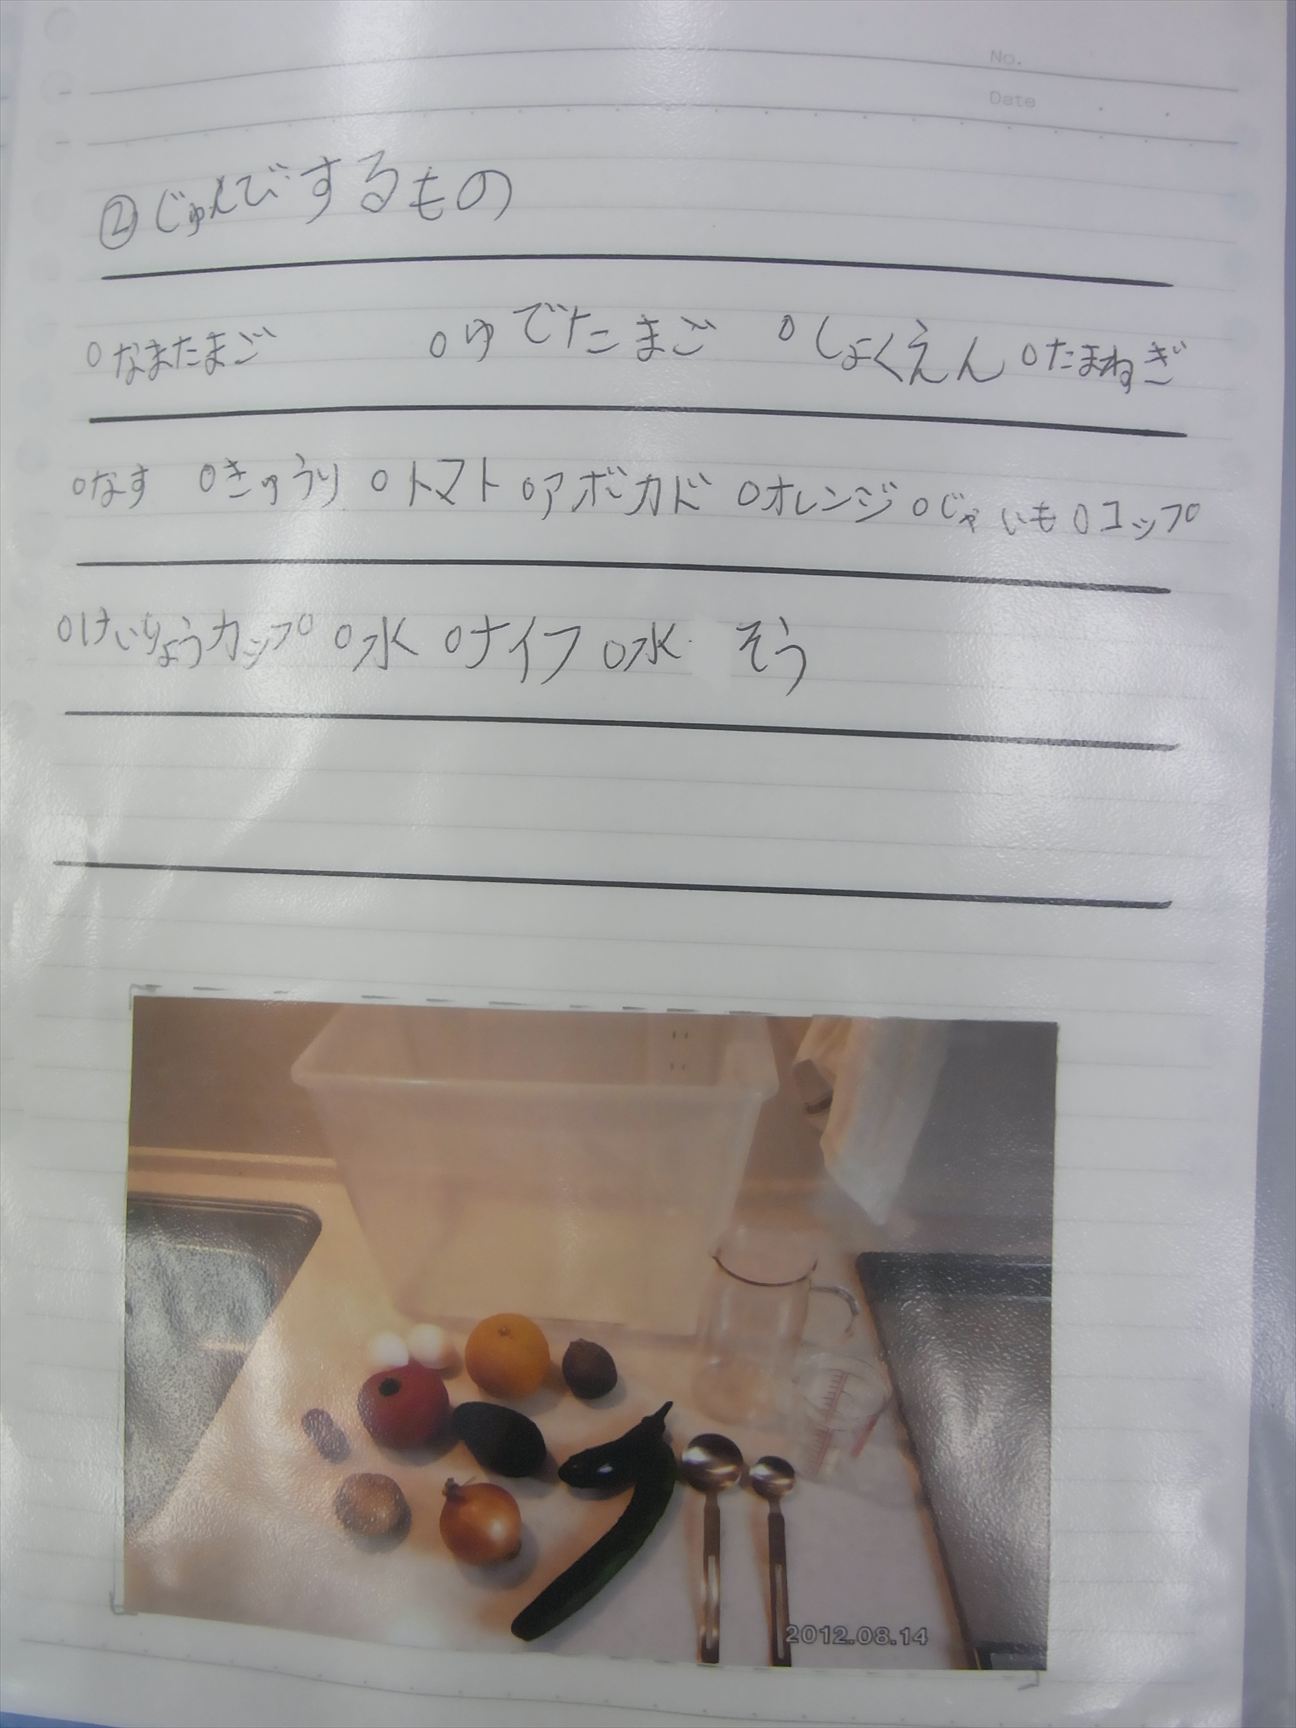 No.
Date
②じゅんびするもの
○なまたまご ○ゆでたまご ○しょくえん ○たまねぎ
○なす ○きゅうり ○トマト ○アボカド ○オレンジ ○じゃいも ○コップ
○けいりょうカップ ○水 ○ナイフ ○水 そう
2012.08.14